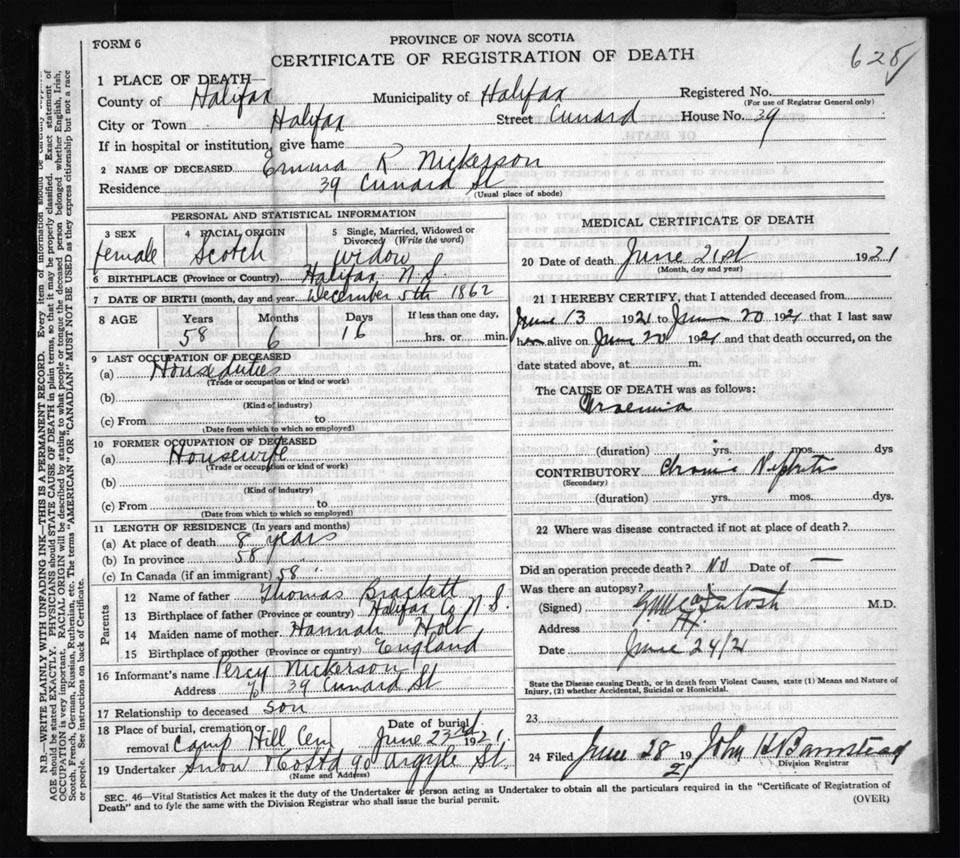 FORM 6
PROVINCE OF NOVA SCOTIA
CERTIFICATE OF REGISTRATION OF DEATH
625
1 PLACE OF DEATH—
County of Halifax Municipality of Halifax Registered No.
(For use of Registrar General only)
City or Town Halifax Street Cunard House No. 39
If in hospital or institution, give name
2 NAME OF DECEASED Emma R. Nickerson
Residence 39 Cunard St
(Usual place of abode)
PERSONAL AND STATISTICAL INFORMATION
3 SEX 4 RACIAL ORIGIN 5 Single, Married, Widowed or Divorced (Write the word)
female Scotch widow
6 BIRTHPLACE (Province or Country) Halifax N.S.
7 DATE OF BIRTH (month, day and year December 5th 1862
8 AGE Years Months Days If less than one day,
58 6 16 hrs. or min.
9 LAST OCCUPATION OF DECEASED
(a) Houseduties
(Trade or occupation or kind or work)
(b)
(Kind of industry)
(c) From to
(Date from which to which employed)
10 FORMER OCCUPATION OF DECEASED
(a) Housewife
(Trade or occupation or kind of work)
(b)
(Kind of industry)
(c) From to
(Date from which to which so employed)
11 LENGTH OF RESIDENCE (In years and months)
(a) At place of death 8 years
(b) In province 58 "
(c) In Canada (if an immigrant) 58 "
Parents
12 Name of father Thomas Brackett
13 Birthplace of father (Province or country) Halifax Co N.S.
14 Maiden name of mother Hannah Holt
15 Birthplace of mother (Province or country) England
16 Informant's name Percy Nickerson
Address 39 Cunard St
17 Relationship to deceased son
18 Place of burial, cremation or removal Camp Hill Cem Date of burial June 23rd 1921.
19 Undertaker Snow & Co Ltd 90 Argyle St.
(Name and Address)
MEDICAL CERTIFICATE OF DEATH
20 Date of death June 21st 1921
(Month, day and year)
21 I HEREBY CERTIFY, that I attended deceased from
June 13 1921 to June 20 1921 that I last saw
her alive on June 20 1921 and that death occurred, on the
date stated above, at m.
The CAUSE OF DEATH was as follows:
Uraemia
(duration) yrs. mos. dys
CONTRIBUTORY Chronic Nephritis
(Secondary)
(duration) yrs. mos. dys.
22 Where was disease contracted if not at place of death?
Did an operation precede death? No Date of —
Was there an autopsy?
(Signed) McIntosh M.D.
Address
Date June 24/21
State the Disease causing Death, or in death from Violent Causes, state (1) Means and Nature of
Injury, (2) whether Accidental, Suicidal or Homicidal.
23
24 Filed June 28 1921 John H Barnstead
Division Registrar
SEC. 46—Vital Statistics Act makes it the duty of the Undertaker or person acting as Undertaker to obtain all the particulars required in the "Certificate of Registration of
Death" and to fyle the same with the Division Registrar who shall issue the burial permit. (OVER)
N.B.—WRITE PLAINLY WITH UNFADING INK—THIS IS A PERMANENT RECORD. Every item of information should be carefully supplied.
AGE should be stated EXACTLY. PHYSICIANS should STATE CAUSE OF DEATH in plain terms, so that it may be properly classified. Exact statement of
OCCUPATION is very important. RACIAL ORIGIN will be described by stating to what people or tongue the deceased person belonged whether English, Irish,
Scotch, French, German, Russian, Ruthenian, etc. The terms "AMERICAN" OR "CANADIAN" MUST NOT BE USED as they express citizenship but not a race
or people. See instructions on back of Certificate.